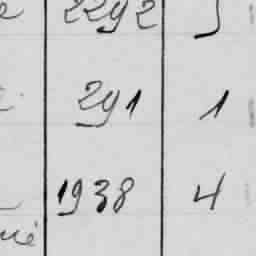 2292 5
291 1
1938 4